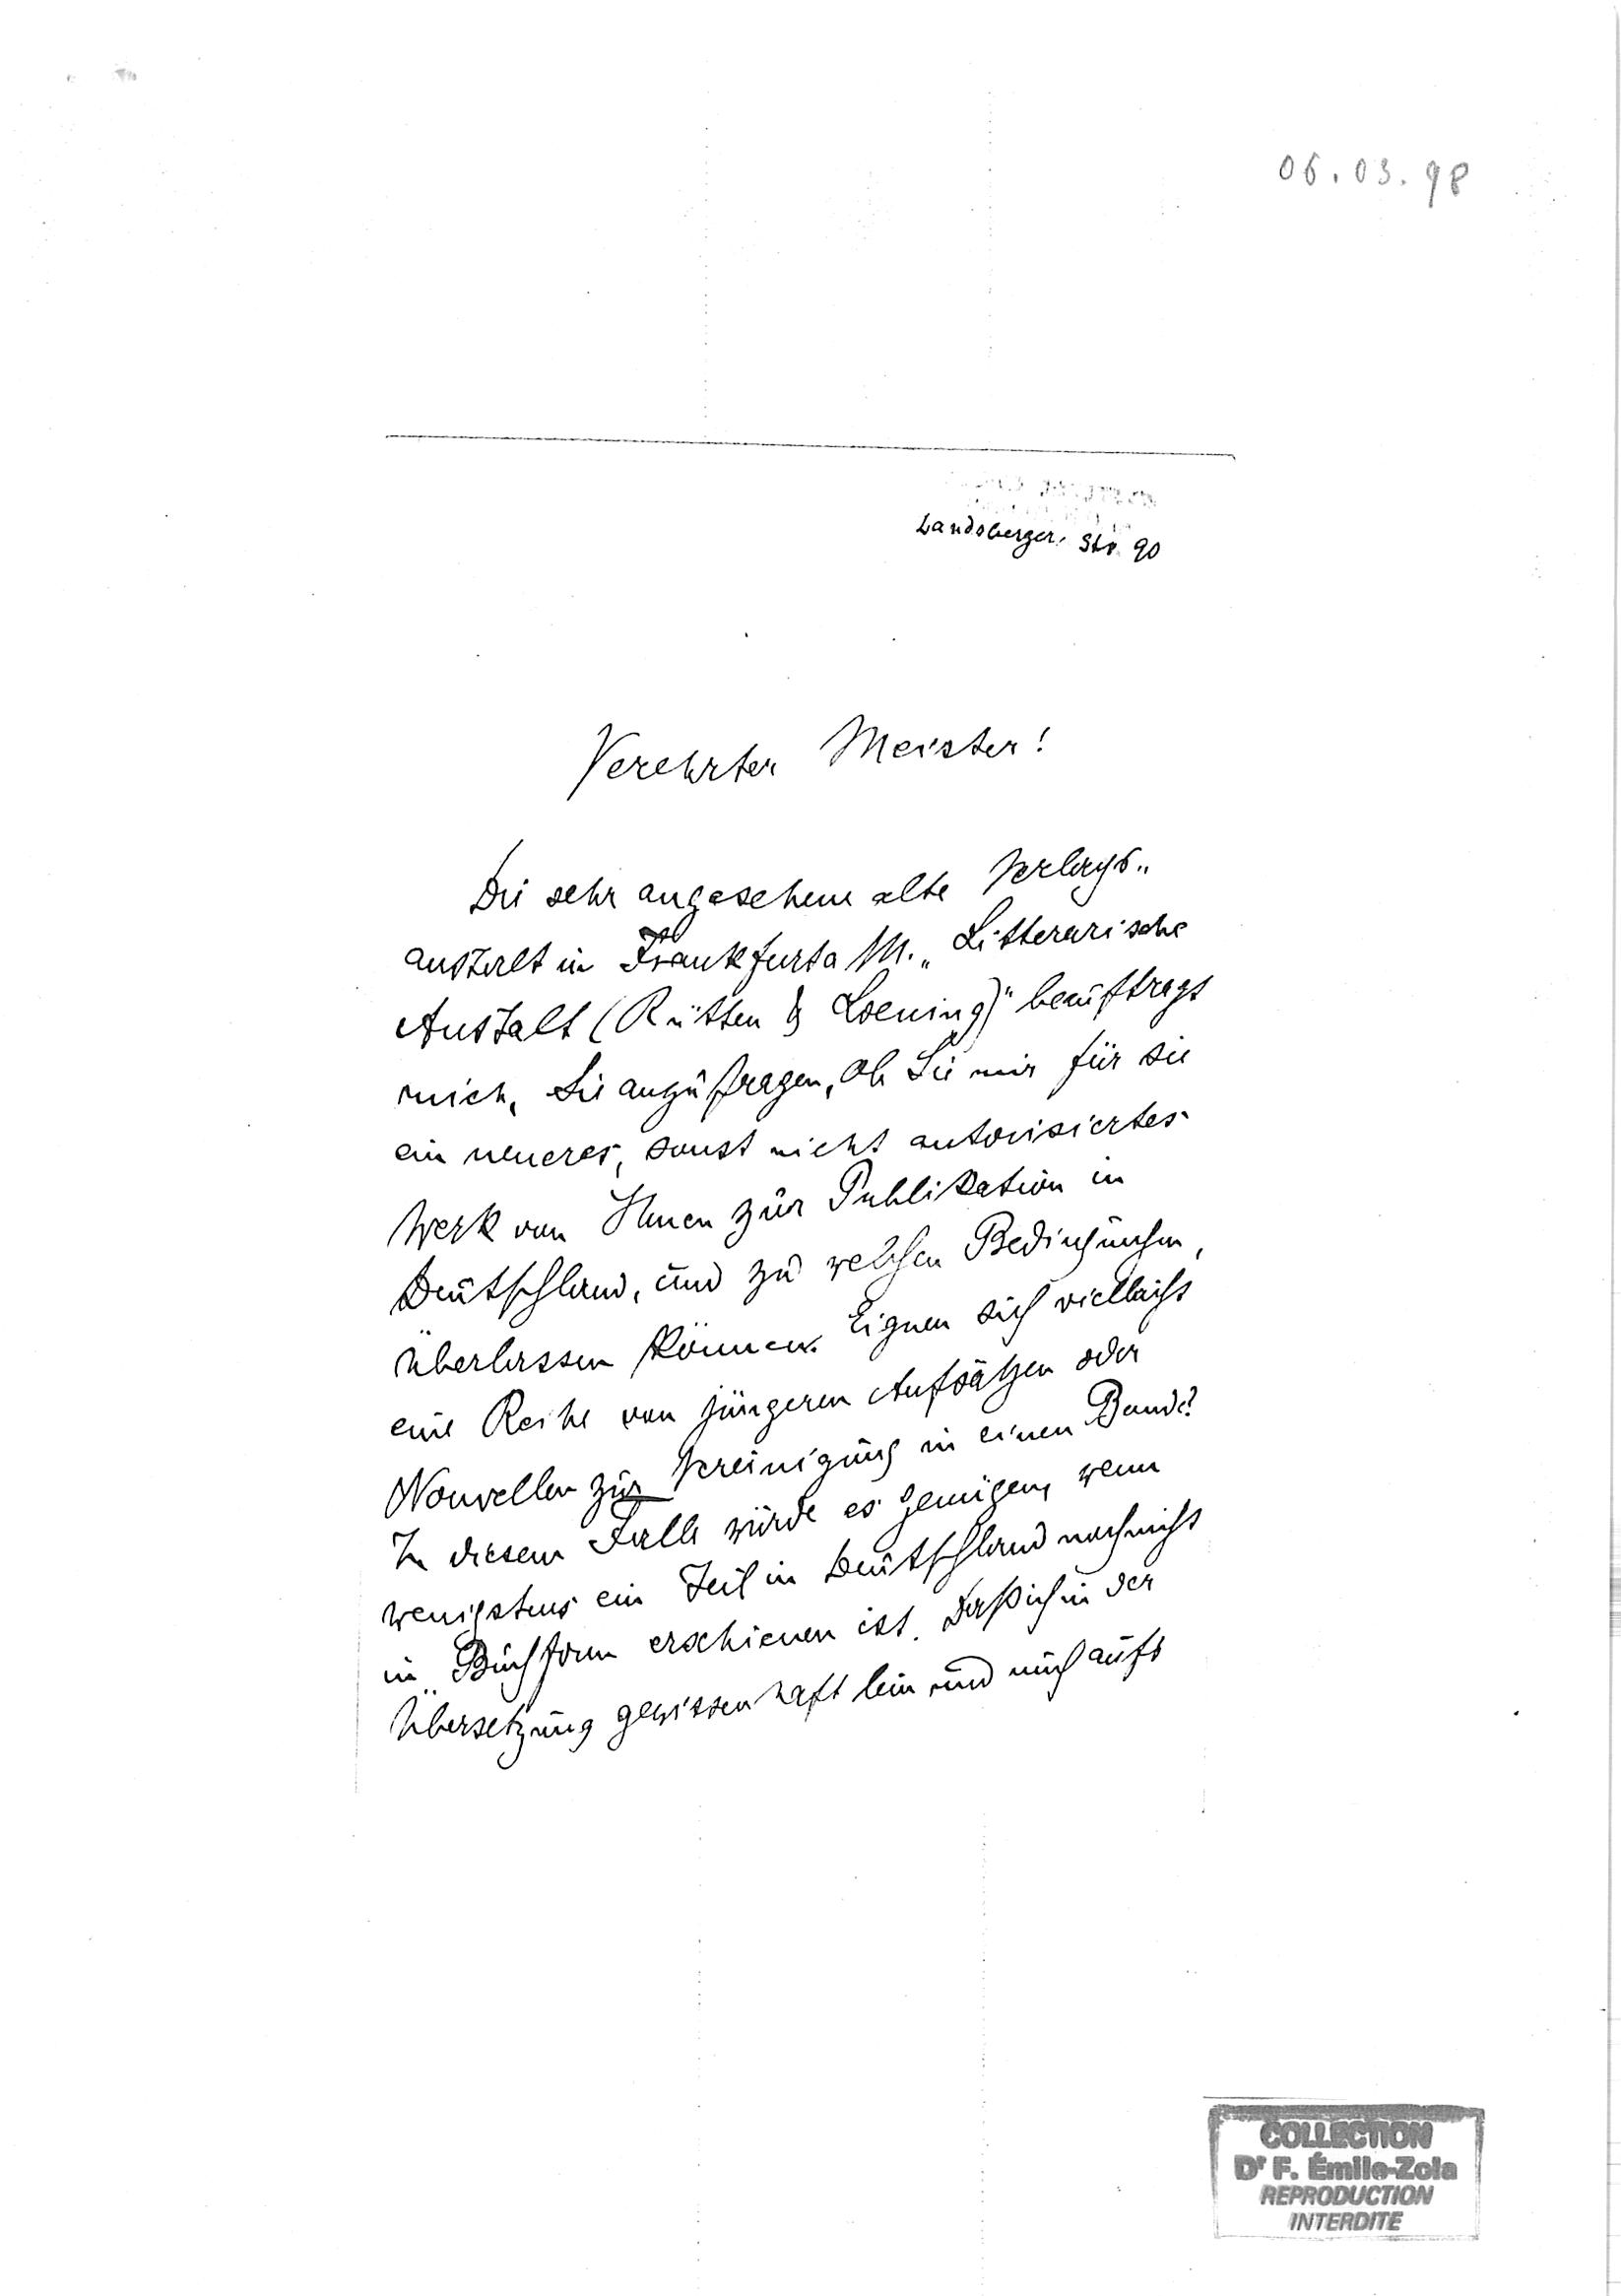 06.03.98
Landsberger Str. 90
Verehrter Meister!
Die sehr angesehene alte Verlags-
anstalt in Frankfurt a M. „Litterarische
Anstalt (Rütten & Loening)" beauftragt
mich, Sie anzufragen, ob Sie mir für sie
ein neueres, sonst nicht autorisiertes
Werk von Ihnen zur Publikation in
Deutschland, und zu welchen Bedingungen,
überlassen können. Eignen sich vielleicht
eine Reihe von jüngeren Aufsätzen oder
Nouvellen zur Vereinigung in einen Band?
In diesem Falle würde es genügen, wenn
wenigstens ein Teil in Deutschland noch nicht
in Buchform erschienen ist. Daß ich in der
Übersetzung gewissenhaft bin und mich aufs
COLLECTION
Dr F. Émile-Zola
REPRODUCTION
INTERDITE